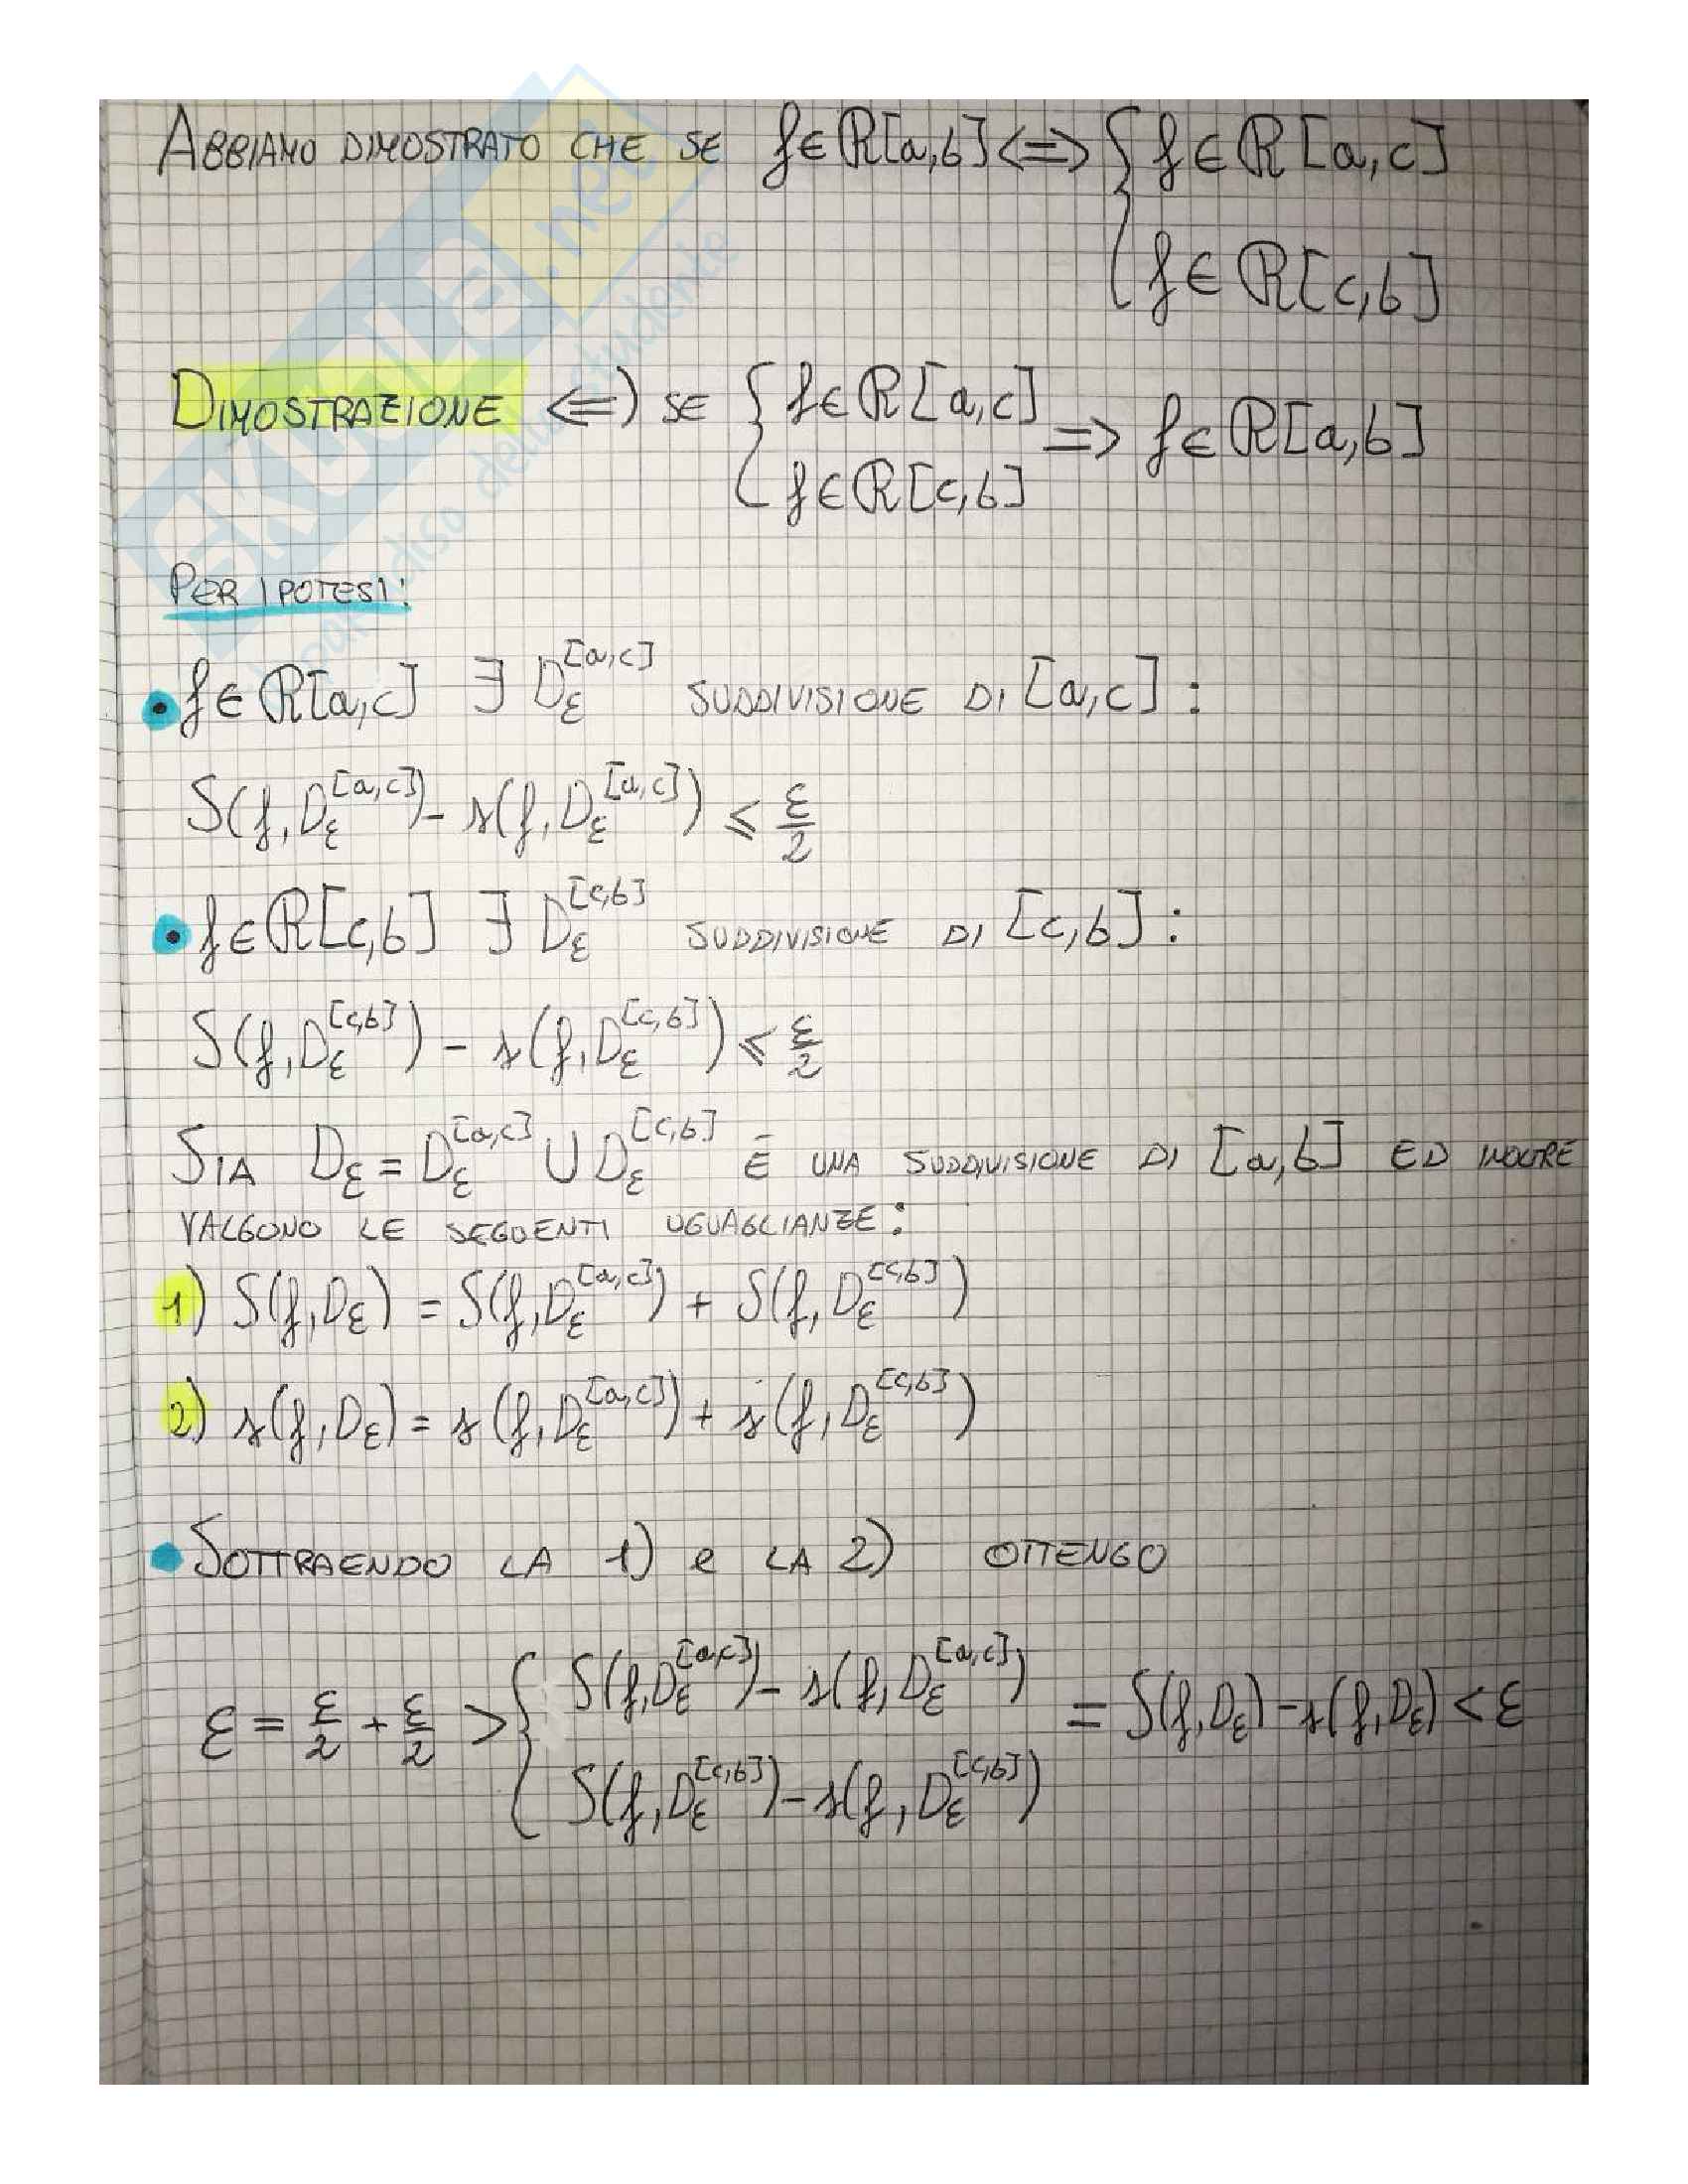 ABBIAMO DIMOSTRATO CHE SE f∈R[a,b] <=> { f∈R[a,c]
{ f∈R[c,b]
DIMOSTRAZIONE <=) SE { f∈R[a,c]
{ f∈R[c,b] => f∈R[a,b]
PER IPOTESI:
• f∈R[a,c] ∃ D_ε^[a,c] SUDDIVISIONE DI [a,c]:
S(f,D_ε^[a,c]) - s(f,D_ε^[a,c]) ⩽ ε/2
• f∈R[c,b] ∃ D_ε^[c,b] SUDDIVISIONE DI [c,b]:
S(f,D_ε^[c,b]) - s(f,D_ε^[c,b]) ⩽ ε/2
SIA D_ε = D_ε^[a,c] ∪ D_ε^[c,b] È UNA SUDDIVISIONE DI [a,b] ED INOLTRE
VALGONO LE SEGUENTI UGUAGLIANZE:
1) S(f,D_ε) = S(f,D_ε^[a,c]) + S(f,D_ε^[c,b])
2) s(f,D_ε) = s(f,D_ε^[a,c]) + s(f,D_ε^[c,b])
• SOTTRAENDO LA 1) e LA 2) OTTENGO
ε = ε/2 + ε/2 > { S(f,D_ε^[a,c]) - s(f,D_ε^[a,c])
{ S(f,D_ε^[c,b]) - s(f,D_ε^[c,b]) = S(f,D_ε) - s(f,D_ε) < ε
SKUOLA.net
dello studente